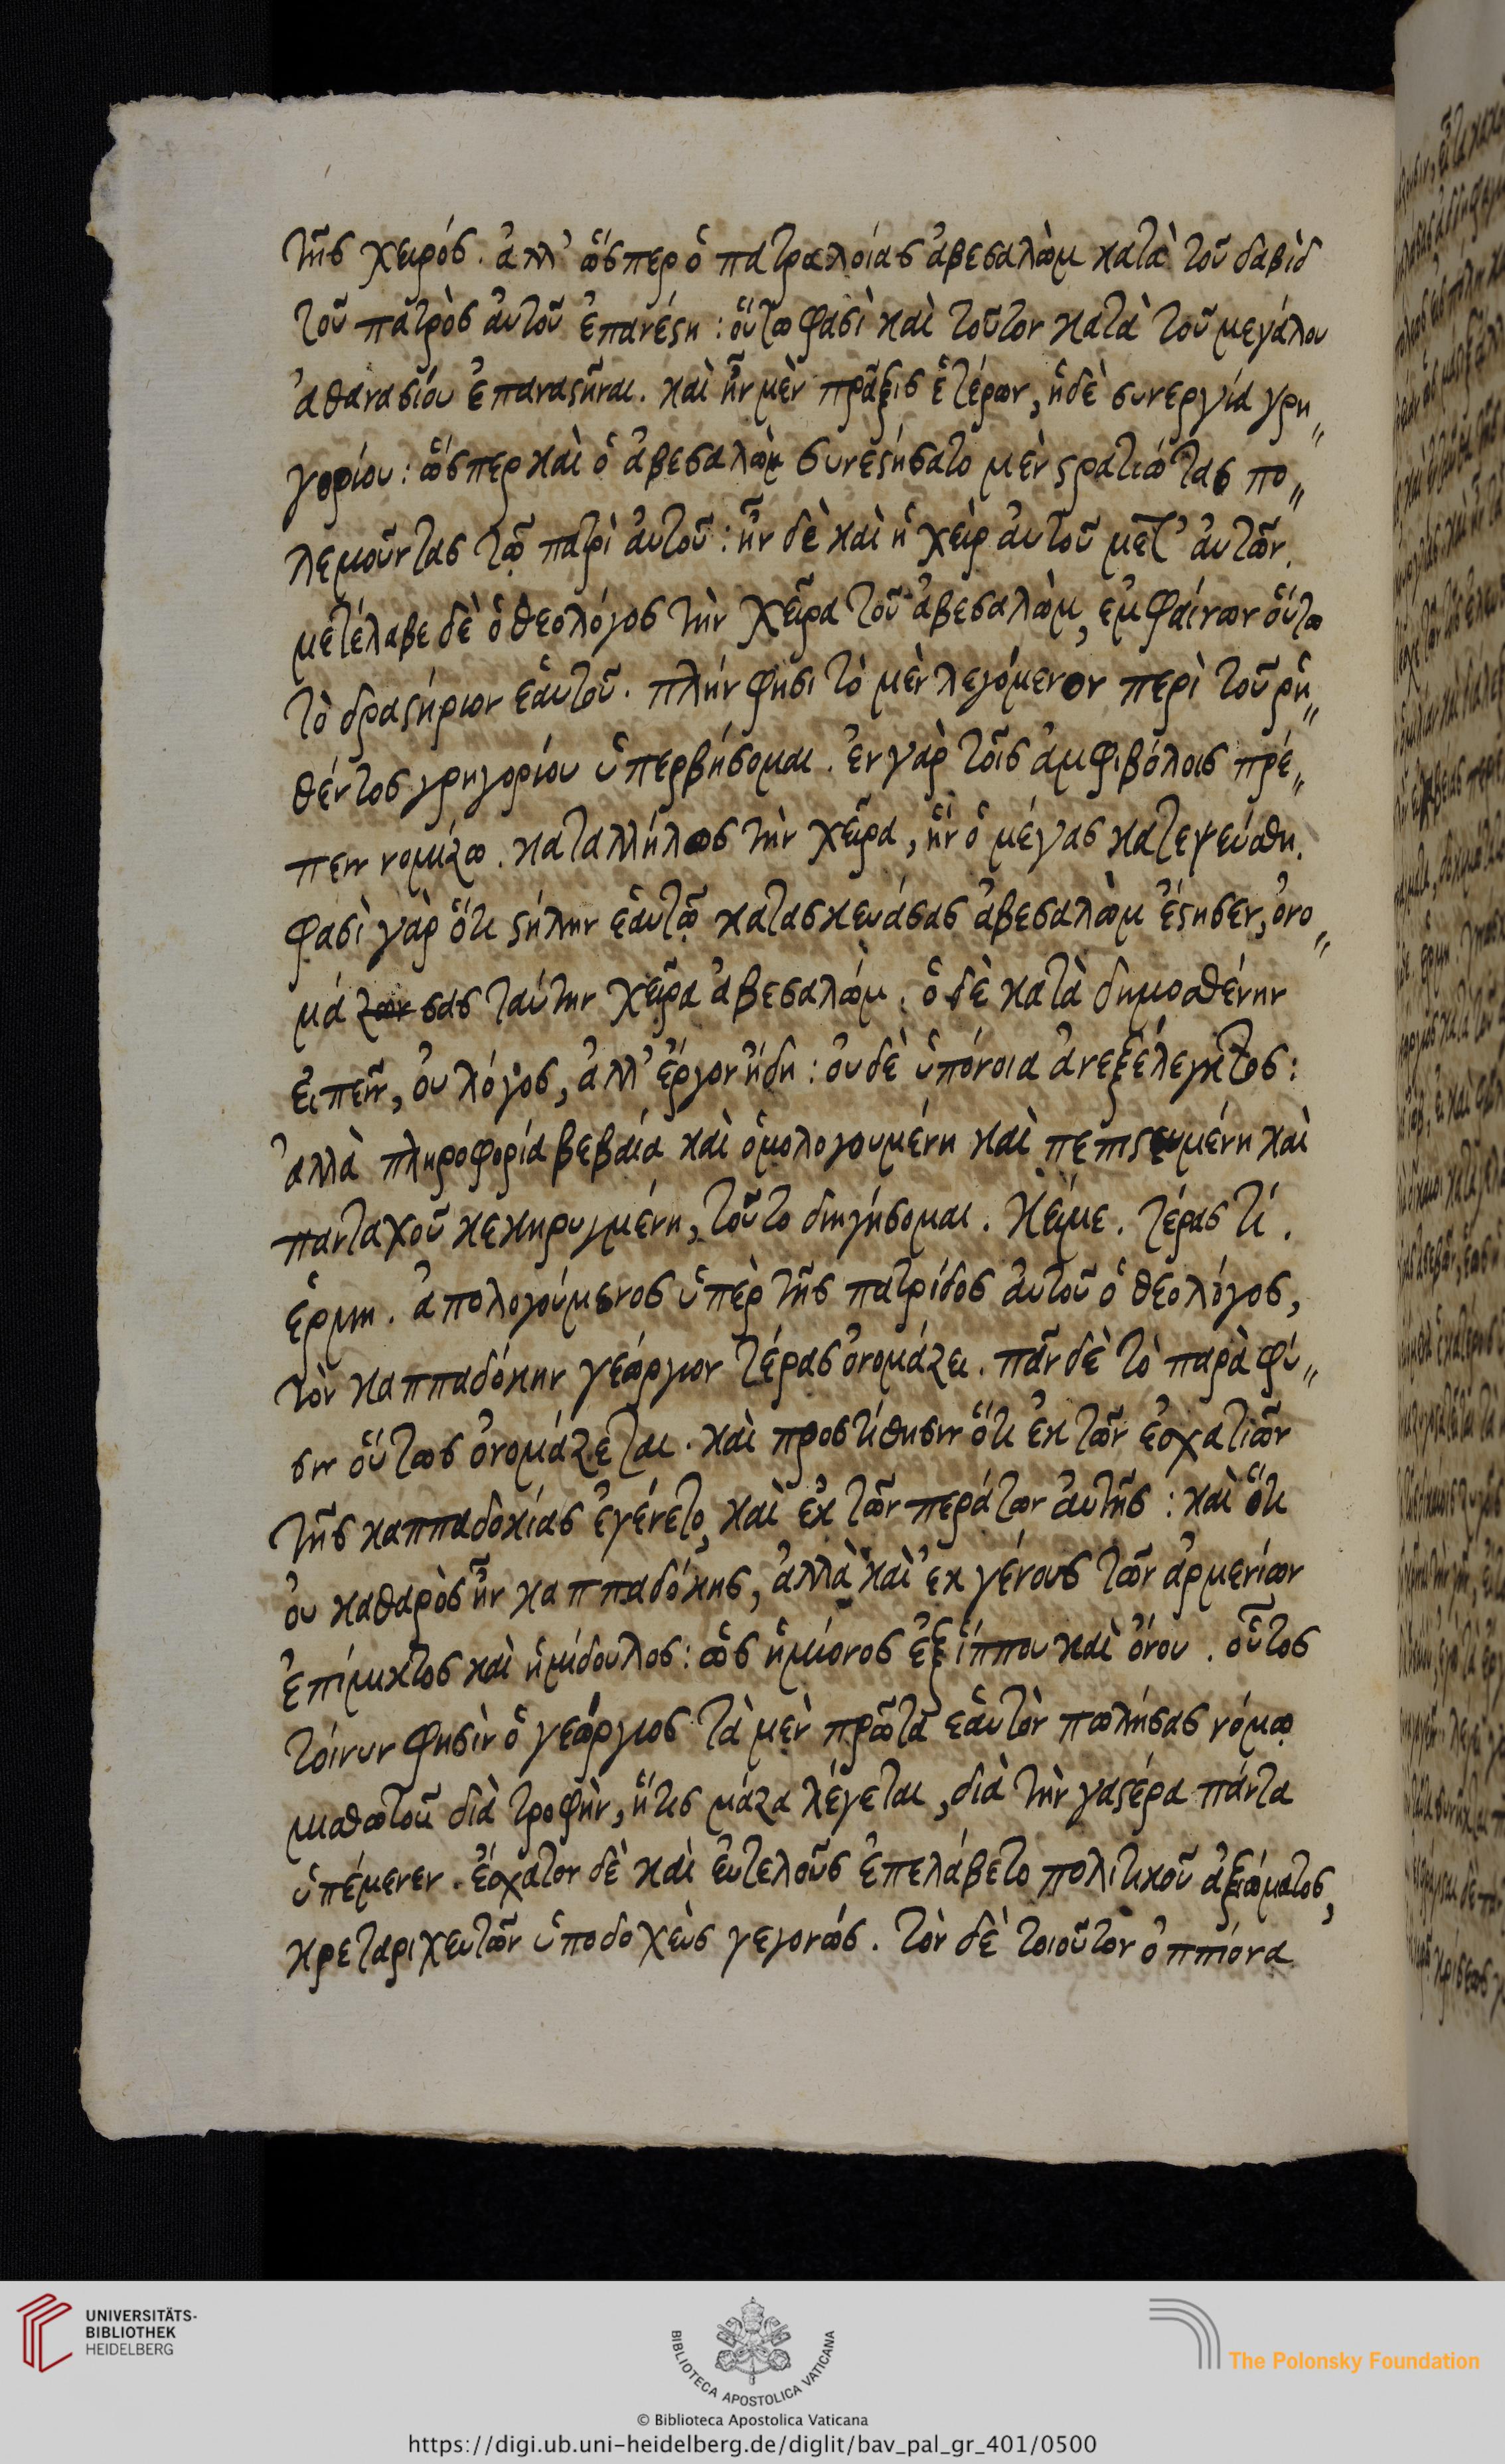 τῆς χειρός. ἀλλ' ὥσπερ ὁ πατραλοίας ἀβεσαλὼμ κατὰ τοῦ δαβὶδ
τοῦ πατρὸς αὐτοῦ ἐπανέστη: οὕτω φασὶ καὶ τοῦτον κατὰ τοῦ μεγάλου
ἀθανασίου ἐπαναστῆναι. καὶ ἦν μὲν πρᾶξις ἑτέρων, ἡ δὲ συνεργία γρη„
γορίου: ὥσπερ καὶ ὁ ἀβεσαλὼμ συνεστήσατο μὲν στρατιώτας πο„
λεμοῦντας τῷ πατρὶ αὐτοῦ: ἦν δὲ καὶ ἡ χεὶρ αὐτοῦ μετ' αὐτῶν.
μετέλαβε δὲ ὁ θεολόγος τὴν χεῖρα τοῦ ἀβεσαλὼμ, ἐμφαίνων οὕτω
τὸ δραστήριον ἑαυτοῦ. πλήν φησι τὸ μὲν λεγόμενον περὶ τοῦ ῥη„
θέντος γρηγορίου ὑπερβήσομαι. ἐν γὰρ τοῖς ἀμφιβόλοις πρέ„
πειν νομίζω. καταλλήλως τὴν χεῖρα, ἣν ὁ μέγας κατεψεύσθη.
φασὶ γὰρ ὅτι στήλην ἑαυτῷ κατασκευάσας ἀβεσαλὼμ ἔστησεν, ὀνο„
μά ζων σας ταύτην χεῖρα ἀβεσαλώμ. ὁ δὲ κατὰ δημοσθένην
εἰπεῖν, οὐ λόγος, ἀλλ' ἔργον ἤδη: οὐδὲ ὑπόνοια ἀνεξέλεγκτος:
ἀλλὰ πληροφορία βεβαία καὶ ὁμολογουμένη καὶ πεπιστευμένη καὶ
πανταχοῦ κεκηρυγμένη, τοῦτο διηγήσομαι. Κείμε. τέρας τί.
ἑρμη. ἀπολογούμενος ὑπὲρ τῆς πατρίδος αὐτοῦ ὁ θεολόγος,
τὸν καππαδόκην γεώργιον τέρας ὀνομάζει. πᾶν δὲ τὸ παρὰ φύ„
σιν οὕτως ὀνομάζεται. καὶ προστίθησιν ὅτι ἐκ τῶν ἐσχατιῶν
τῆς καππαδοκίας ἐγένετο, καὶ ἐκ τῶν περάτων αὐτῆς: καὶ ὅτι
οὐ καθαρὸς ἦν καππαδόκης, ἀλλὰ καὶ ἐκ γένους τῶν ἀρμενίων
ἐπίμικτος καὶ ἡμίδουλος: ὡς ἡμίονος ἐξ ἵππου καὶ ὄνου. οὗτος
τοίνυν φησὶν ὁ γεώργιος τὰ μὲν πρῶτα ἑαυτὸν πωλήσας νόμῳ
μισθωτοῦ διὰ τροφὴν, ἥτις μάζα λέγεται, διὰ τὴν γαστέρα πάντα
ὑπέμενεν. ἔσχατον δὲ καὶ εὐτελοῦς ἐπελάβετο πολιτικοῦ ἀξιώματος,
κρεταριχευτῶν ὑποδοχεὺς γεγονώς. τὸν δὲ τοιοῦτον ὀππιόνα
UNIVERSITÄTS-
BIBLIOTHEK
HEIDELBERG
BIBLIOTECA APOSTOLICA VATICANA
The Polonsky Foundation
© Biblioteca Apostolica Vaticana
https://digi.ub.uni-heidelberg.de/diglit/bav_pal_gr_401/0500